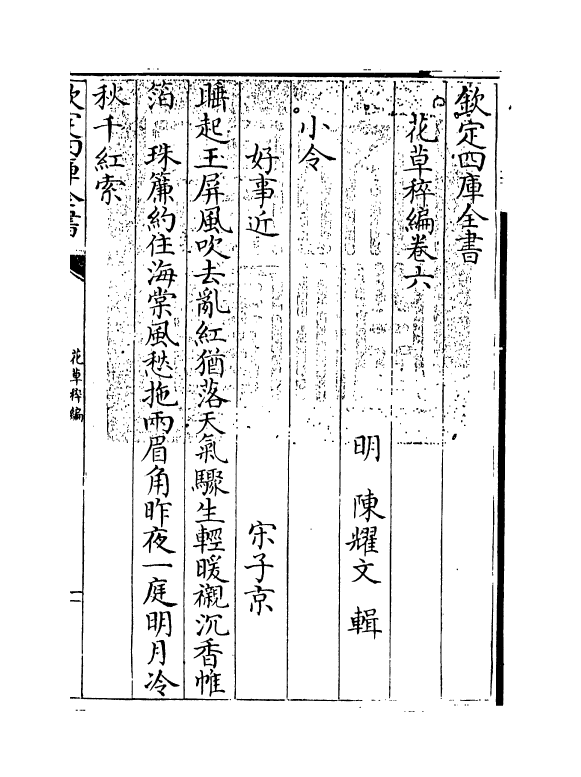 欽定四庫全書
花草稡編卷六
明 陳耀文 輯
小令
好事近 宋子京
睡起玉屏風吹去亂紅猶落天氣驟生輕暖襯沉香帷
箔 珠簾約住海棠風愁拖兩眉角昨夜一庭明月冷
秋千紅索
欽定四庫全書
花草稡編
一